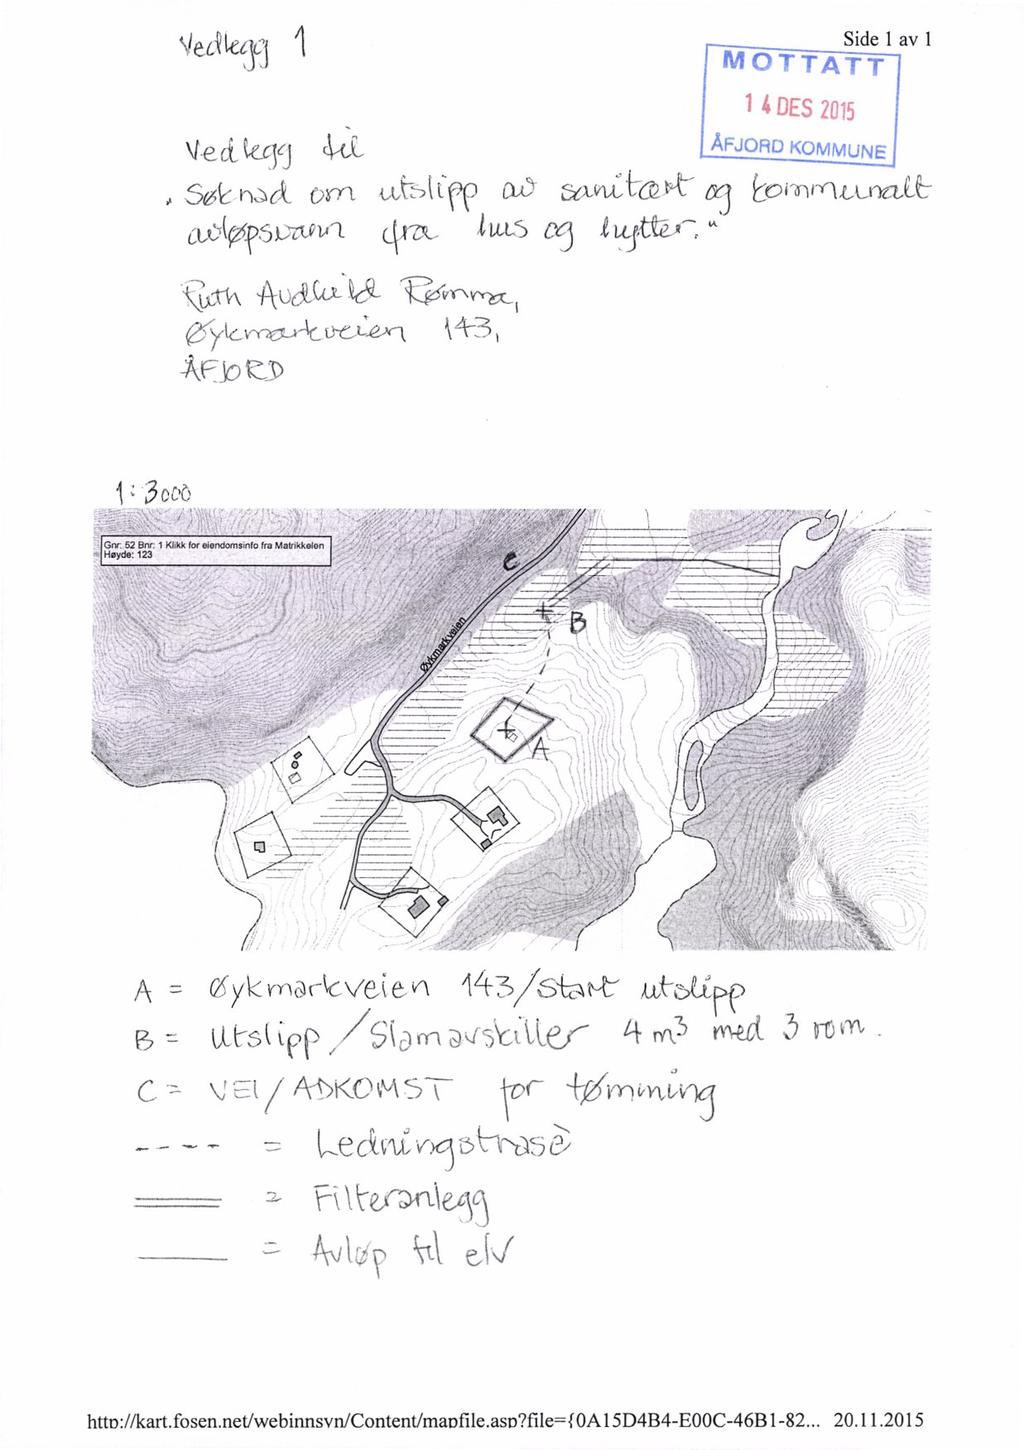 Vedlegg 1
Side 1 av 1
MOTTATT
14 DES 2015
ÅFJORD KOMMUNE
Vedlegg til
"Søknad om utslipp av sanitært og kommunalt
avløpsvann fra hus og hytter."
Ruth Audhild Rømma,
Øykmarkveien 143,
ÅFJORD
1:3000
Gnr: 52 Bnr: 1 Klikk for eiendomsinfo fra Matrikkelen
Høyde: 123
C
B
Øykmarkveien
A
A = Øykmarkveien 143/Start utslipp
B = Utslipp / Slamavskiller 4 m³ med 3 rom.
C = VEI / ADKOMST for tømming
---- = Ledningstrasè
= Filteranlegg
= Avløp til elv
http://kart.fosen.net/webinnsyn/Content/mapfile.asp?file={0A15D4B4-E00C-46B1-82... 20.11.2015